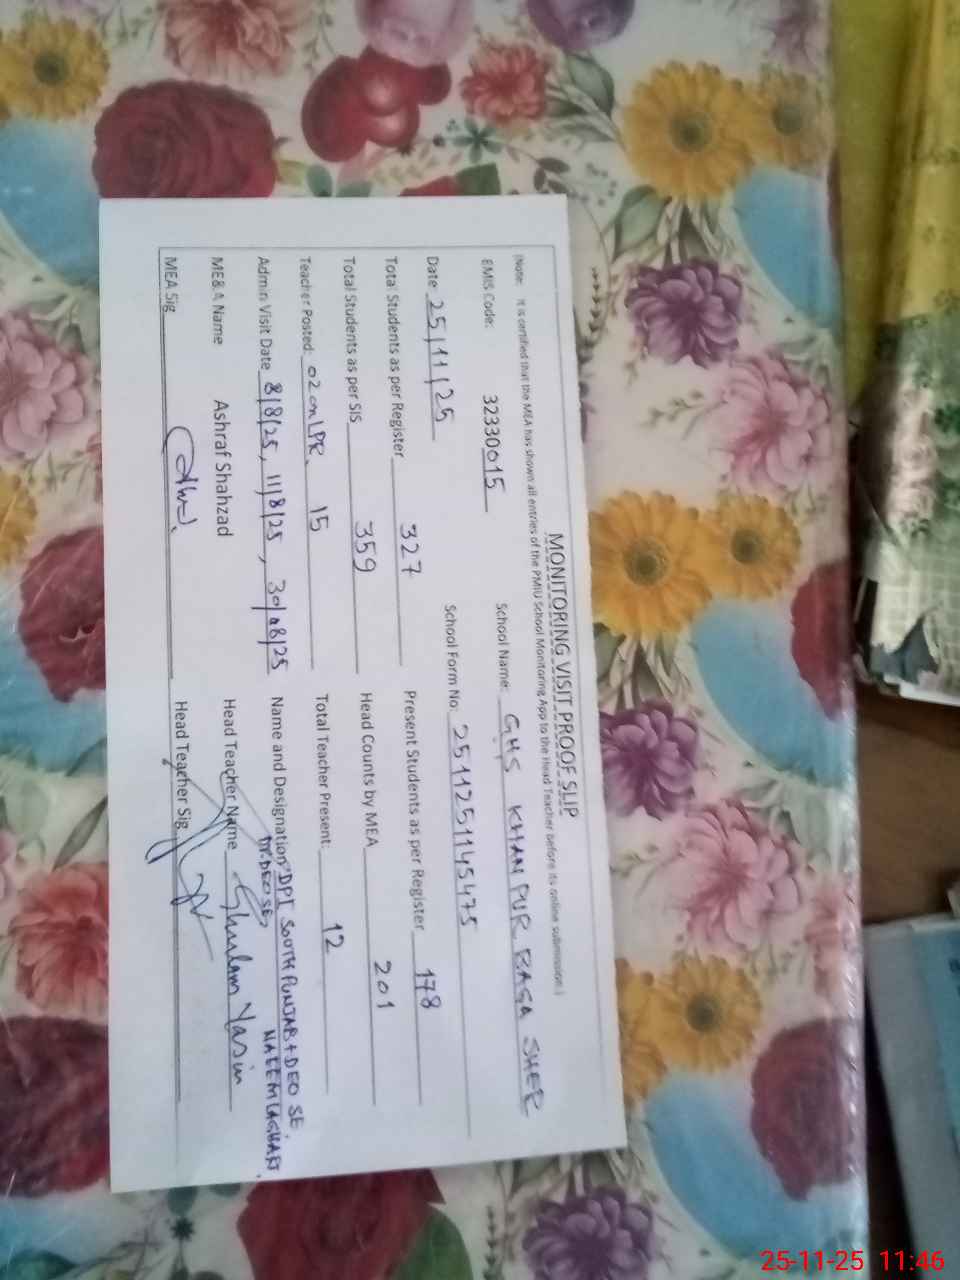 MONITORING VISIT PROOF SLIP
(Note: It is certified that the MEA has shown all entries of the PMIU School Monitoring App to the Head Teacher before its online submission.)
EMIS Code: 32330015 School Name: GHS KHAN PUR BAGA SHER
Date 25/11/25 School Form No: 2511251145475
Total Students as per Register 327 Present Students as per Register 178
Total Students as per SIS 359 Head Counts by MEA 201
Teacher Posted: 02 on LPR. 15 Total Teacher Present: 12
Admin Visit Date 8/8/25, 11/8/25, 30/08/25 Name and Designation DPI SOUTH PUNJAB + DEO SE.
Dy. DEO SE, NAEEM LAGHARI.
ME&A Name Ashraf Shahzad Head Teacher Name Ghulam Yasin
MEA Sig Head Teacher Sig
25-11-25 11:46